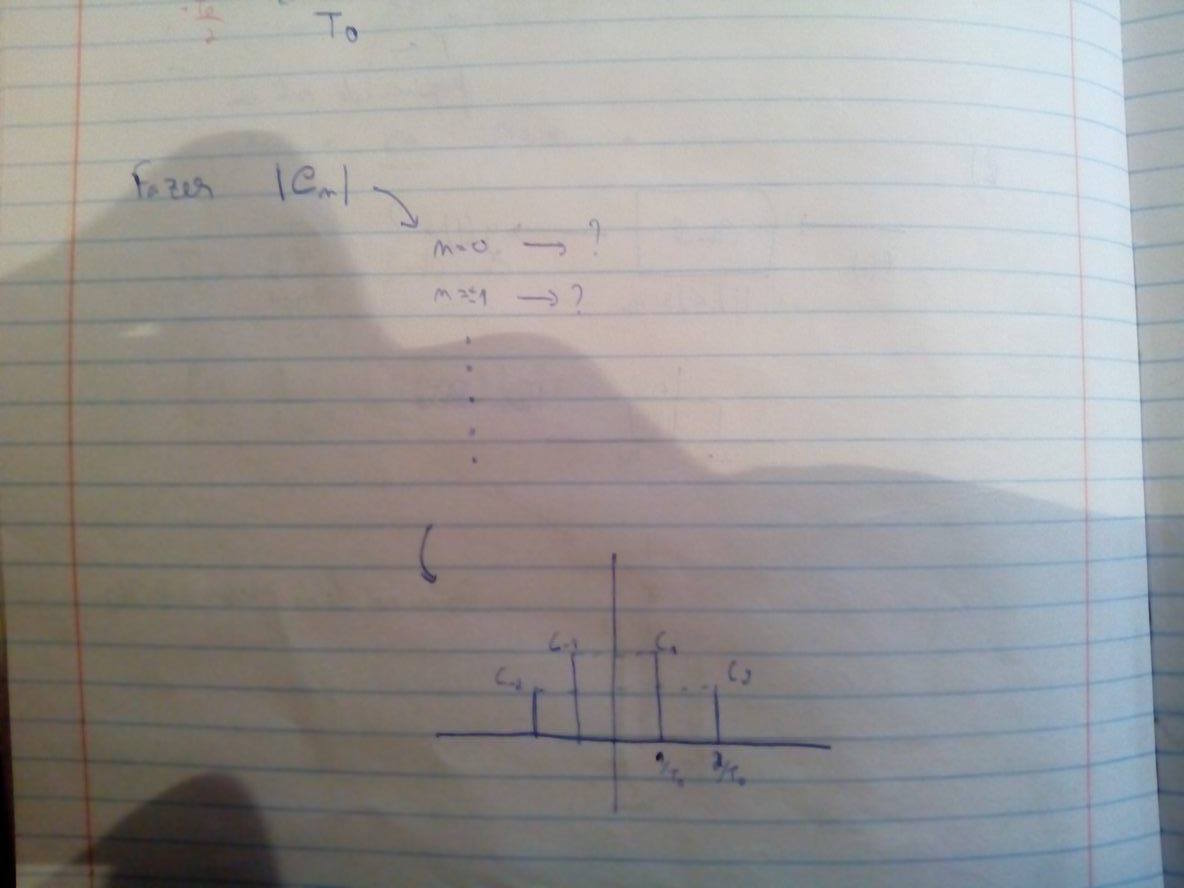 -T0/2 T0
Fazer |Cn|
n=0 → ?
n=±1 → ?
C-1 C1
C-2 C2
1/T0 2/T0